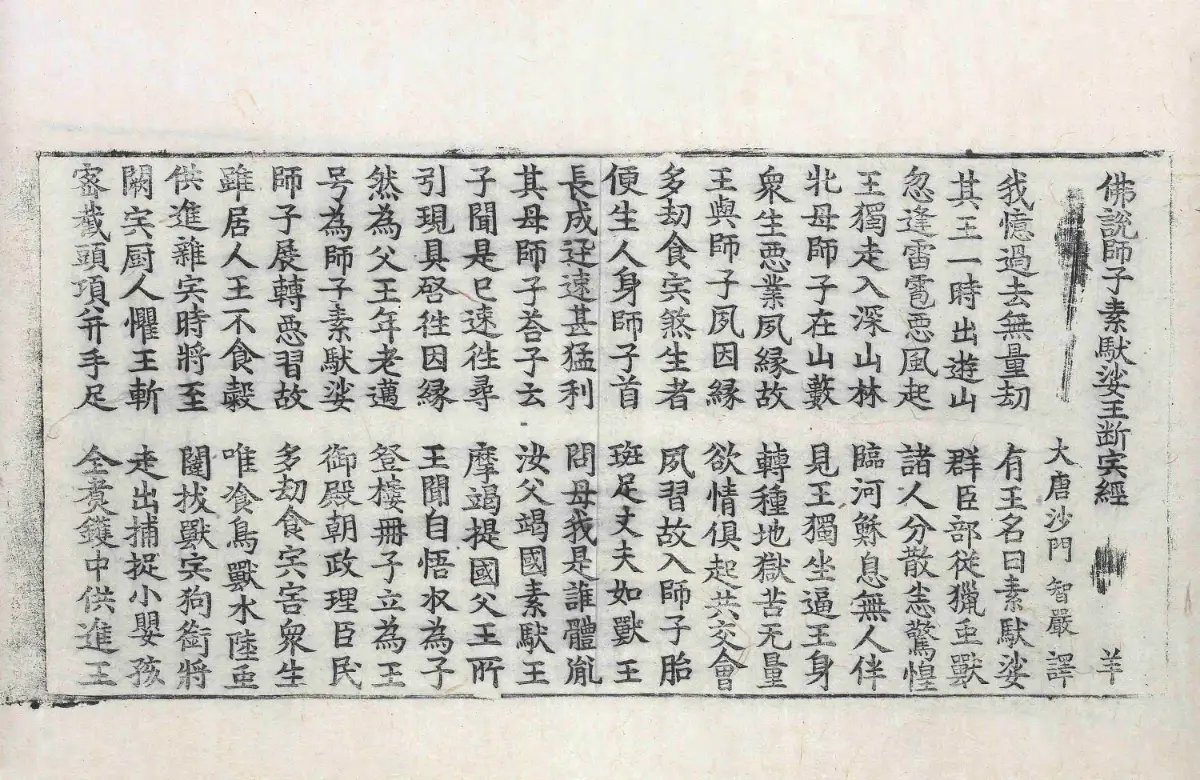 佛說師子素馱娑王断宍經 羊
大唐沙門 智嚴 譯
我憶過去無量劫 有王名曰素馱娑
其王一時出遊山 群臣部從獵䖝獸
忽逢雷雹惡風起 諸人分散恙驚惶
王獨走入深山林 臨河穌息無人伴
牝母師子在山藪 見王獨坐逼王身
衆生惡業夙縁故 轉種地獄苦无量
王與師子夙因縁 欲情俱起共交會
多劫食宍煞生者 夙習故入師子胎
便生人身師子首 斑足丈夫如獸王
長成迂速甚猛利 問母我是誰體胤
其母師子荅子云 汝父竭國素馱王
子聞是已速往尋 摩竭提國父王所
引現具啓往因縁 王聞自悟收為子
然為父王年老邁 登樓冊子立為王
号為師子素馱娑 御殿朝政理臣民
師子展轉惡習故 多劫食宍害衆生
雖居人王不食穀 唯飡鳥獸水陸䖝
供進雜宍時將至 闥拔獸宍狗銜將
闕宍厨人懼王斬 走出捕捉小嬰孩
密截頭項并手足 全煑鑊中供進王